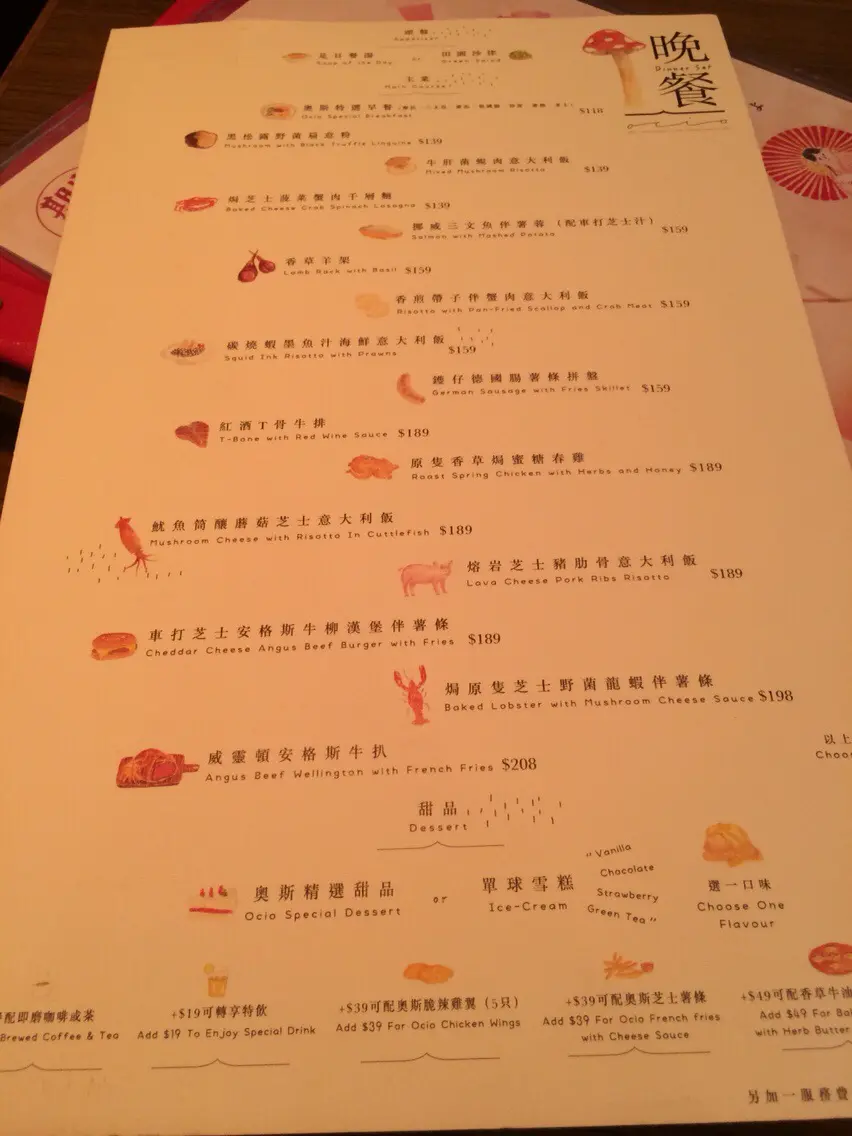 晚餐
Dinner Set
ocio
前餐
Appetizer
是日餐湯
Soup of the Day
or
田園沙律
Green Salad
主菜
Main Course
奧斯特選早餐
Ocio Special Breakfast
$118
黑松露野菌扁意粉
Mushroom with Black Truffle Linguine $139
牛肝菌蜆肉意大利飯
Mixed Mushroom Risotto
$139
焗芝士菠菜蟹肉千層麵
Baked Cheese Crab Spinach Lasagna $139
挪威三文魚伴薯蓉（配車打芝士汁）
Salmon with Mashed Potato
$159
香草羊架
Lamb Rack with Basil $159
香煎帶子伴蟹肉意大利飯
Risotto with Pan-Fried Scallop and Crab Meat $159
碳燒蝦墨魚汁海鮮意大利飯
Squid Ink Risotto with Prawns
$159
鑊仔德國腸薯條拼盤
German Sausage with Fries Skillet $159
紅酒T骨牛排
T-Bone with Red Wine Sauce $189
原隻香草焗蜜糖春雞
Roast Spring Chicken with Herbs and Honey $189
魷魚筒釀蘑菇芝士意大利飯
Mushroom Cheese with Risotto In Cuttlefish $189
熔岩芝士豬肋骨意大利飯
Lava Cheese Pork Ribs Risotto
$189
車打芝士安格斯牛柳漢堡伴薯條
Cheddar Cheese Angus Beef Burger with Fries $189
焗原隻芝士野菌龍蝦伴薯條
Baked Lobster with Mushroom Cheese Sauce $198
以上
威靈頓安格斯牛扒
Angus Beef Wellington with French Fries $208
甜品
Dessert
奧斯精選甜品
Ocio Special Dessert
or
單球雪糕
Ice-Cream
"Vanilla
Chocolate
Strawberry
Green Tea"
選一口味
Choose One
Flavour
配即磨咖啡或茶
Brewed Coffee & Tea
+$19可轉享特飲
Add $19 To Enjoy Special Drink
+$39可配奧斯脆辣雞翼（5只）
Add $39 For Ocio Chicken Wings
+$39可配奧斯芝士薯條
Add $39 For Ocio French fries
with Cheese Sauce
+$49可配香草牛油
Add $49 For
with Herb Butter
另加一服務費